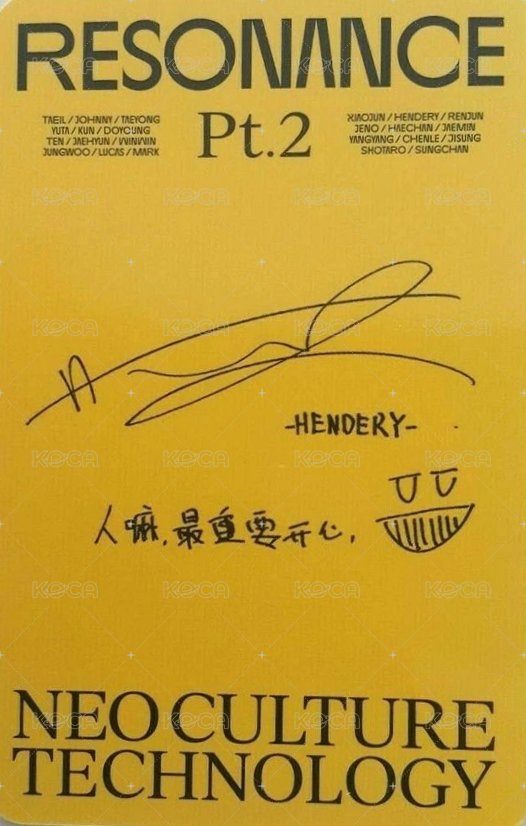 RESONANCE
TAEIL / JOHNNY / TAEYONG
YUTA / KUN / DOYOUNG
TEN / JAEHYUN / WINWIN
JUNGWOO / LUCAS / MARK
Pt.2
XIAOJUN / HENDERY / RENJUN
JENO / HAECHAN / JAEMIN
YANGYANG / CHENLE / JISUNG
SHOTARO / SUNGCHAN
-HENDERY-
人嘛,最重要开心,
NEO CULTURE
TECHNOLOGY
KOCA